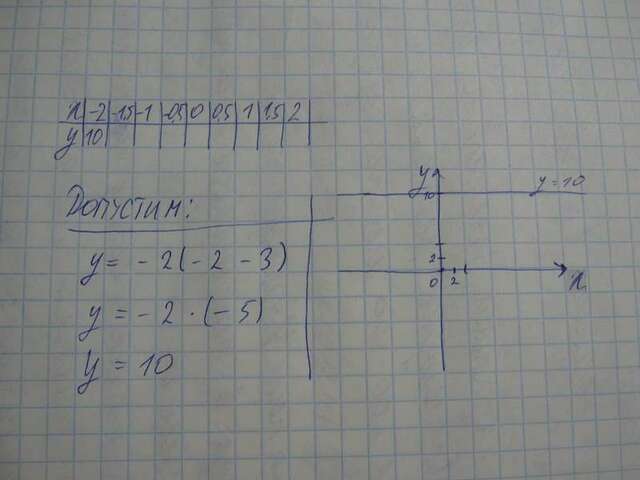 x -2 -1,5 -1 -0,5 0 0,5 1 1,5 2
y 10
Допустим:
y = - 2(- 2 - 3)
y = - 2 · (- 5)
y = 10
y
10
y = 10
2
0 2
x